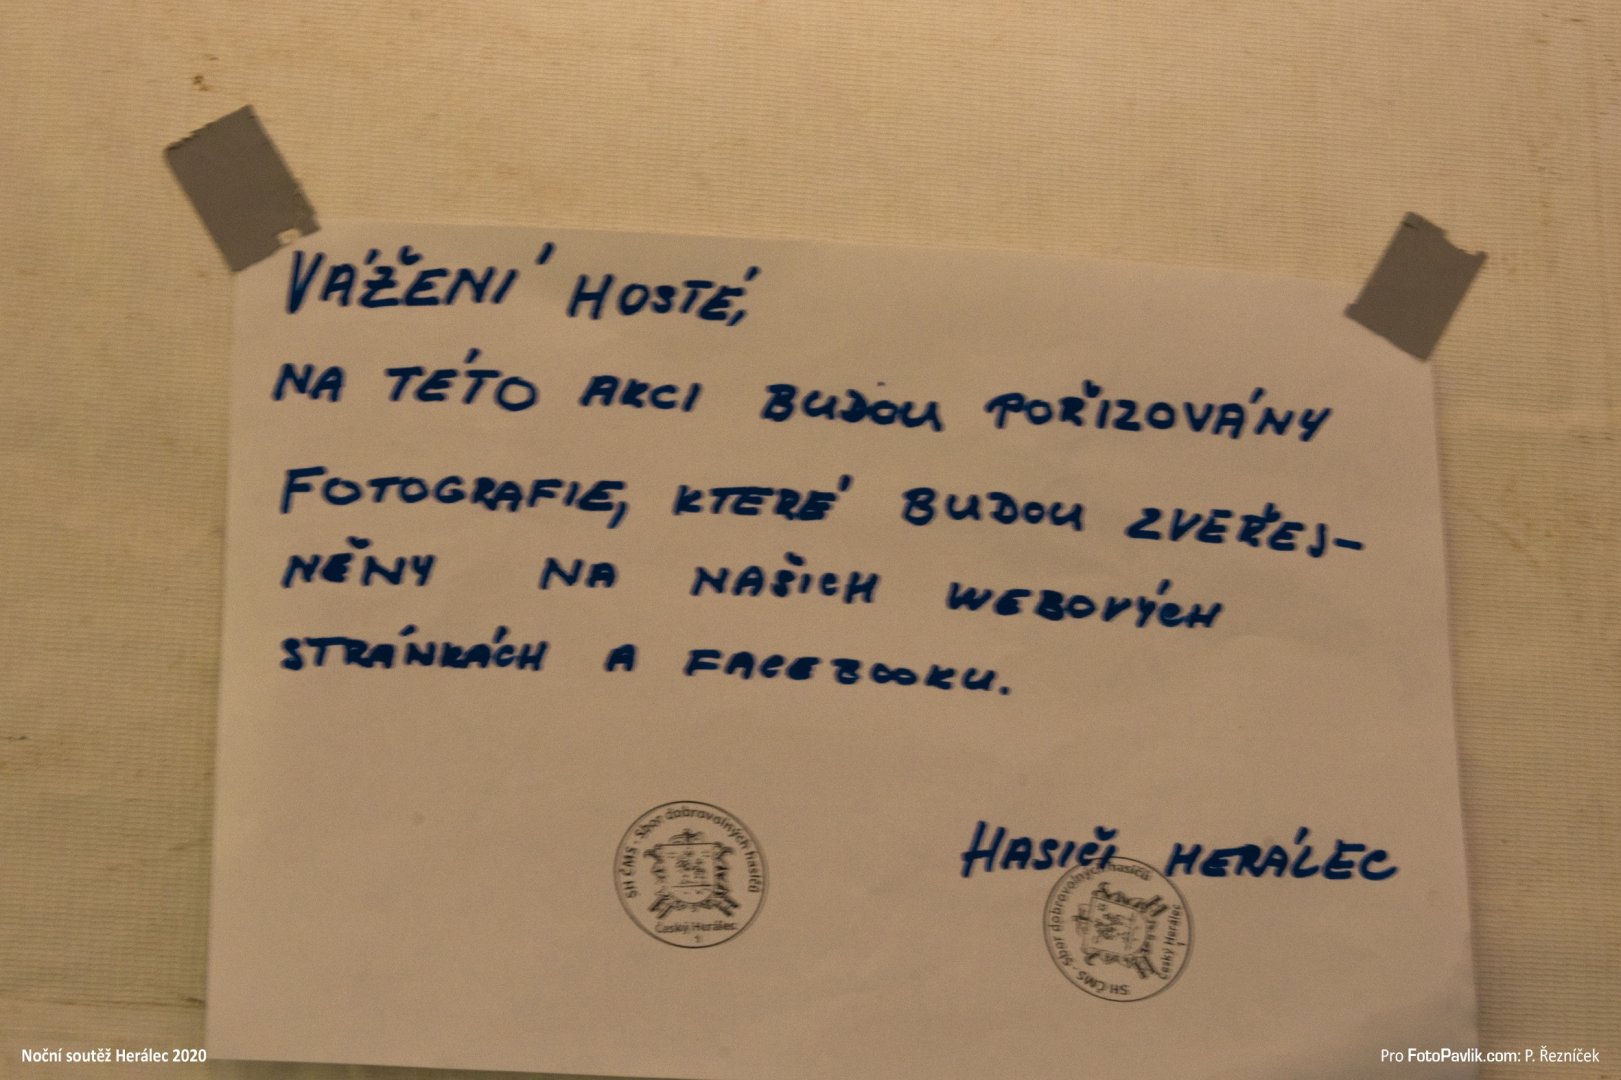 VÁŽENÍ HOSTÉ,
NA TÉTO AKCI BUDOU POŘIZOVÁNY
FOTOGRAFIE, KTERÉ BUDOU ZVEŘEJ-
NĚNY NA NAŠICH WEBOVÝCH
STRÁNKÁCH A FACEBOOKU.
HASIČI HERÁLEC
SH ČMS - Sbor dobrovolných hasičů
Český Herálec
1
SH ČMS - Sbor dobrovolných hasičů
Český Herálec
1
Noční soutěž Herálec 2020
Pro FotoPavlik.com: P. Řezníček